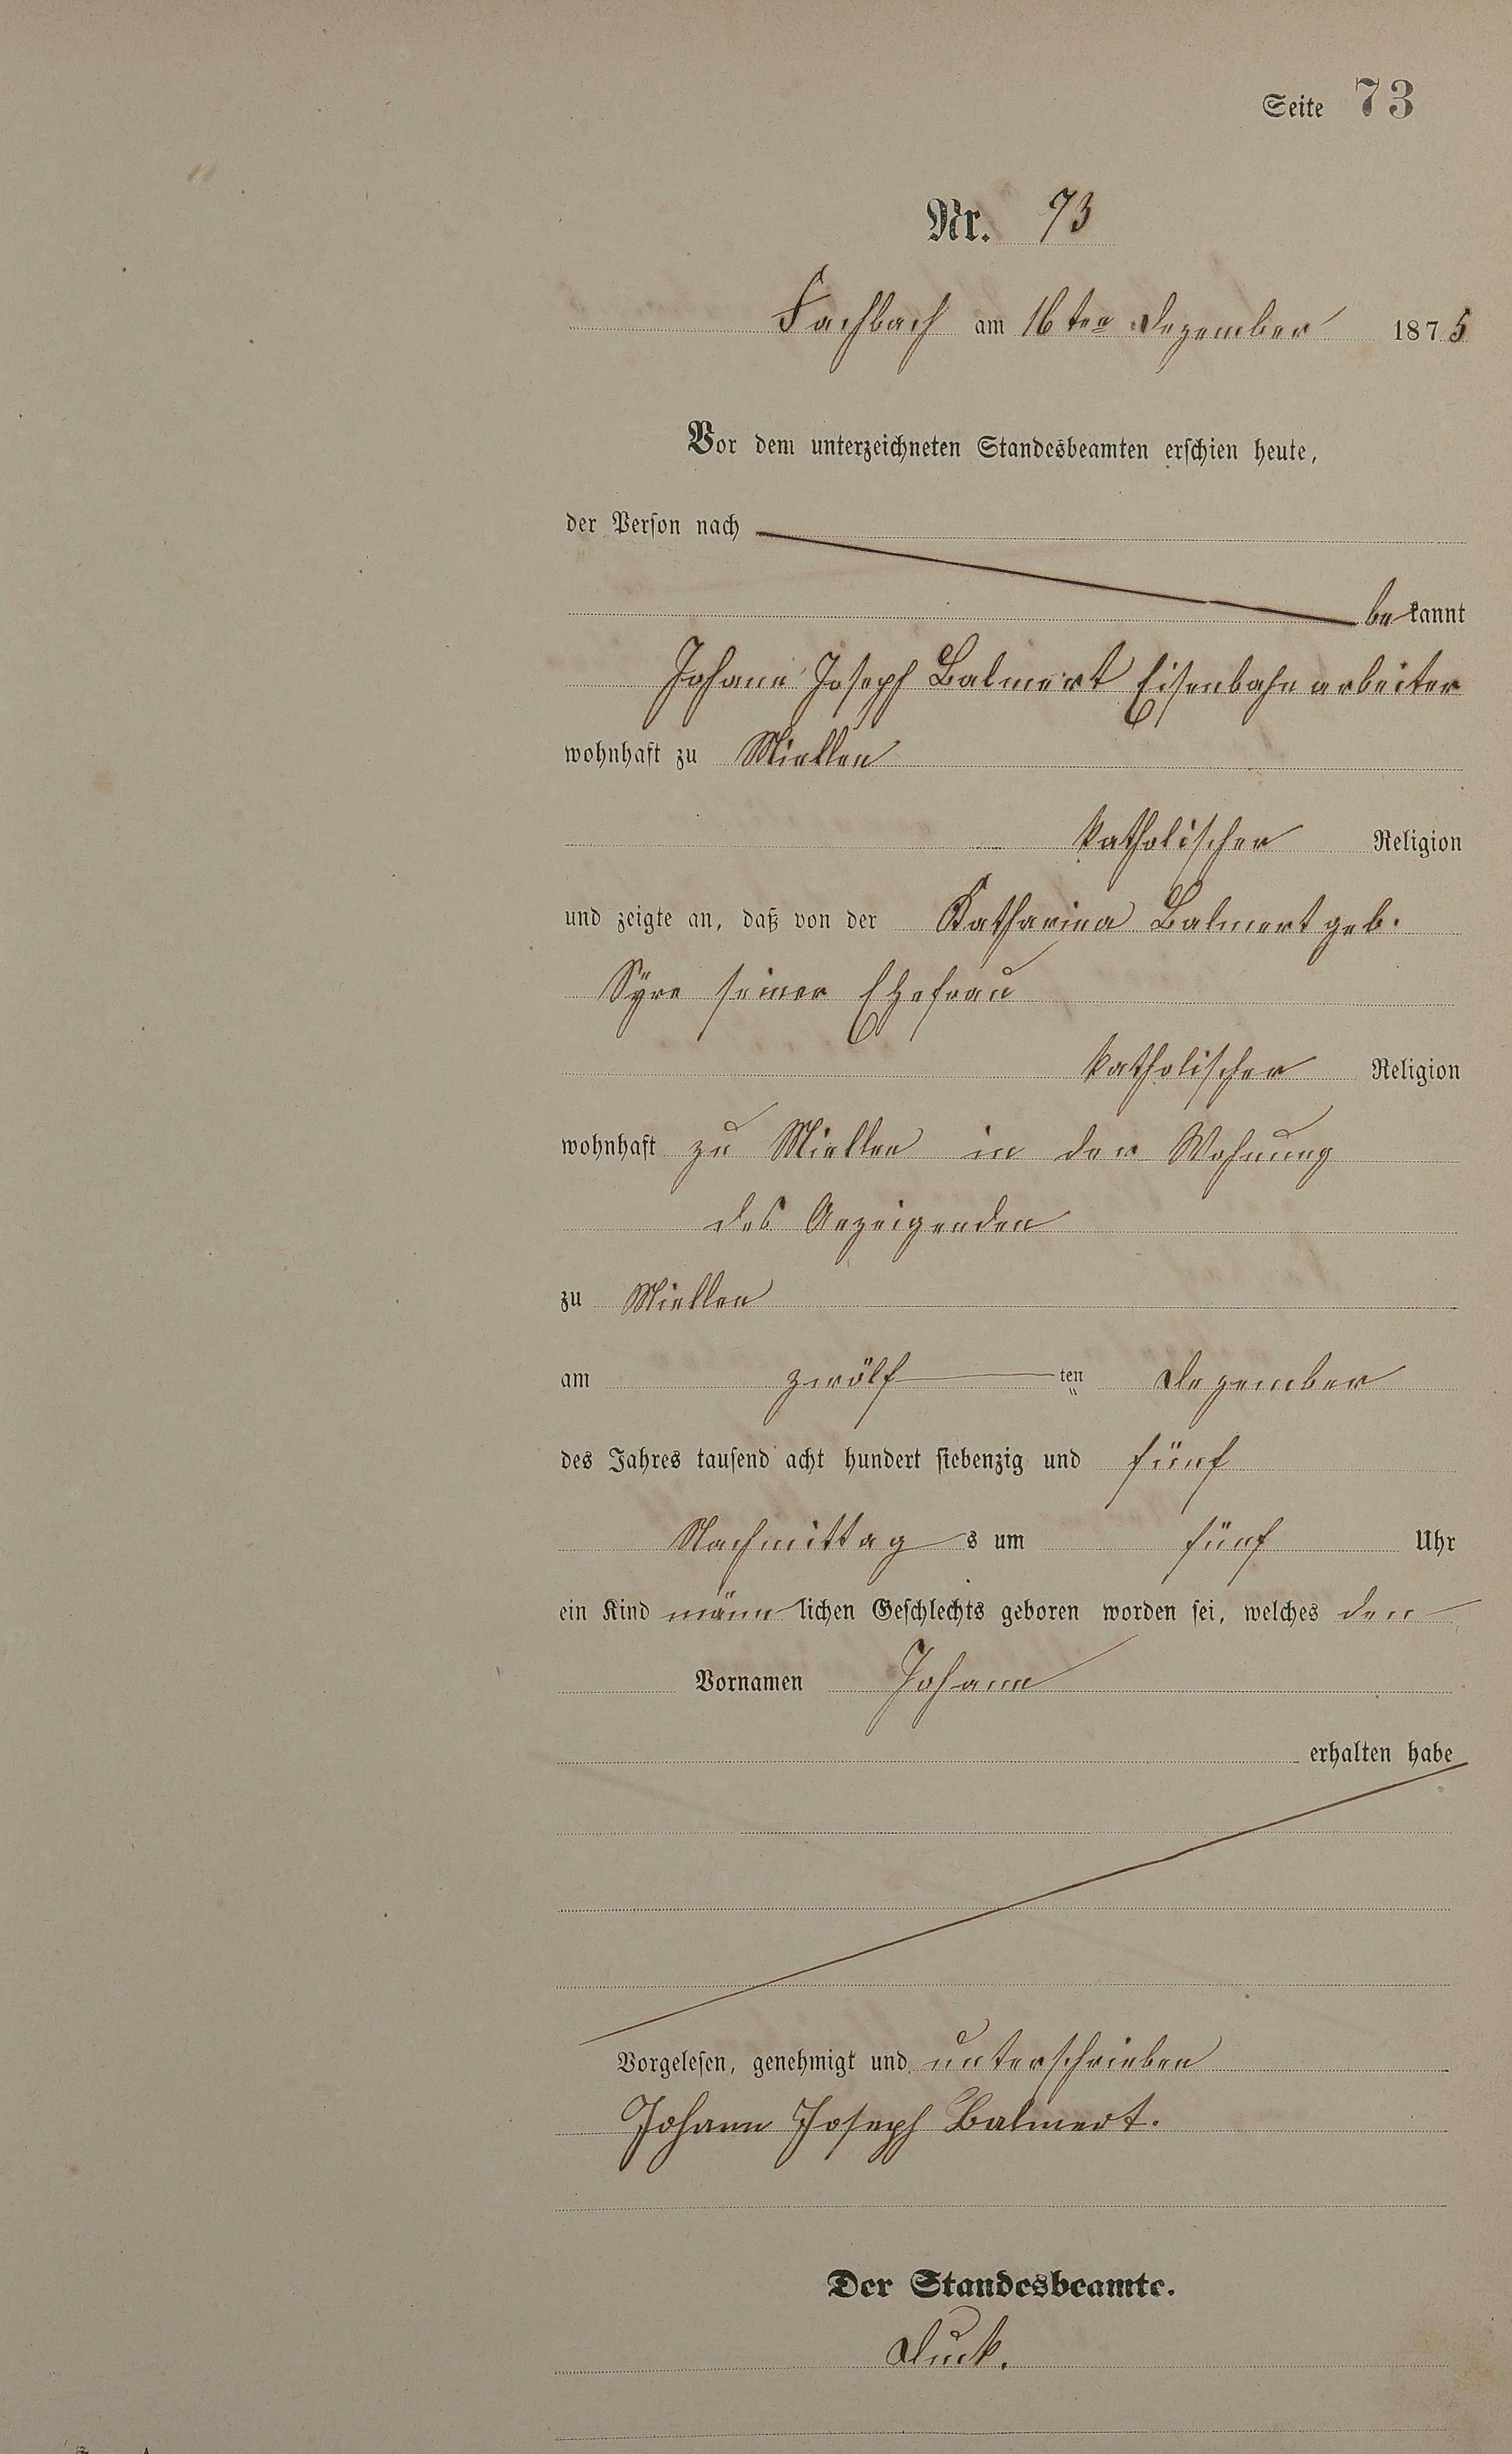 Seite 73
Nr. 73
Fachbach am 16ten Dezember 1875
Vor dem unterzeichneten Standesbeamten erschien heute,
der Person nach
bekannt
Johann Joseph Balmert Eisenbahnarbeiter
wohnhaft zu Miellen
katholischer Religion
und zeigte an, daß von der Katharina Balmert geb.
Syre seiner Ehefrau
katholischer Religion
wohnhaft zu Miellen in der Wohnung
des Anzeigenden
zu Miellen
am zwölf ten Dezember
des Jahres tausend acht hundert siebenzig und fünf
Nachmittags um fünf Uhr
ein Kind männlichen Geschlechts geboren worden sei, welches den
Vornamen Johann
erhalten habe
Vorgelesen, genehmigt und unterschrieben
Johann Joseph Balmert.
Der Standesbeamte.
Duck.